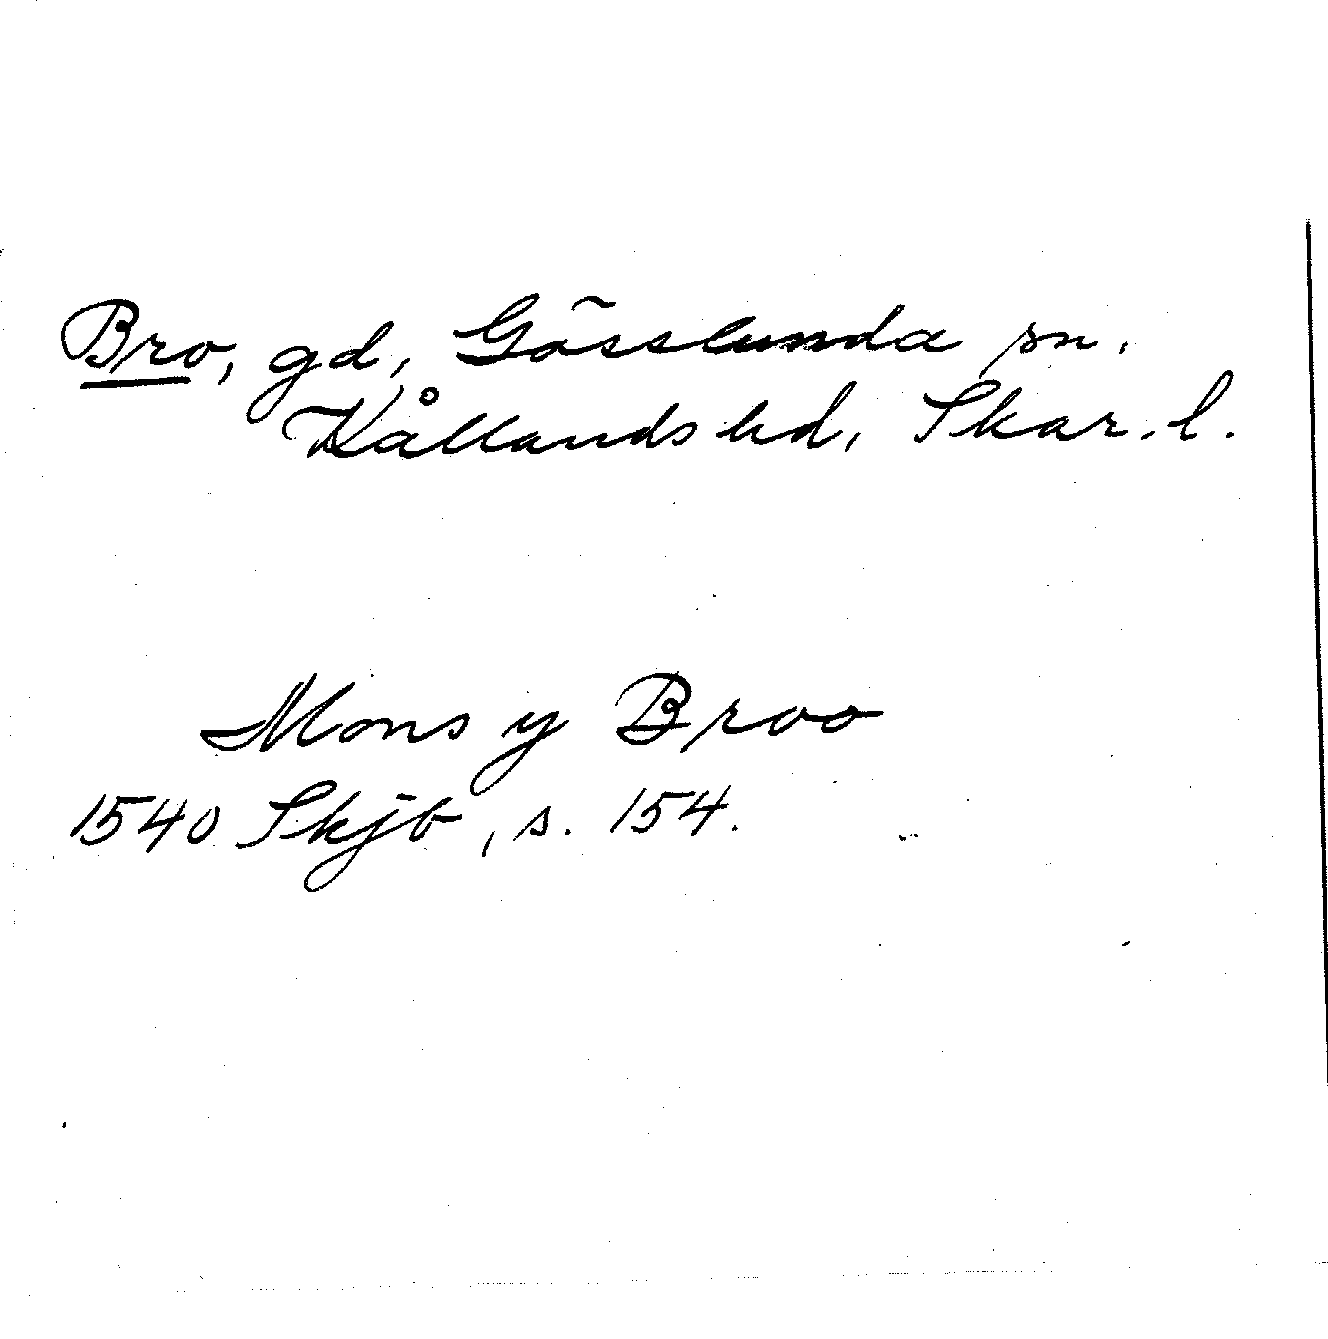 Bro, gd, Gösslunda sn.
Kållands hd, Skar. l.
Mons y Broo
1540 Skjb, s. 154.